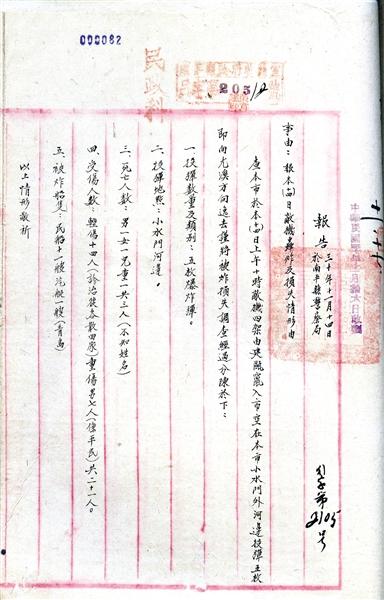 000082
民政科
205
報告 三十年十一月十四日
於南平縣警察局
事由：報本(14)日敵機轟炸及損失情形由
查本市於本(14)日上午十時敵機四架由吳航竄入市空在本市小水門外河邊投彈五枚
即向尤溪方向逸去謹將被炸損失調查經過分陳於下：
一、投彈數量及類別：五枚爆炸彈。
二、投彈地點：小水門河邊。
三、死亡人數：男一女一兒童一共三人(不知姓名)
四、受傷人數：輕傷十四人(診治後各散回家)重傷男七人(係平民)共二十一人。
五、被炸船隻：民船十一艘汽艇一艘(青島)
以上情形敬祈
字第2105號